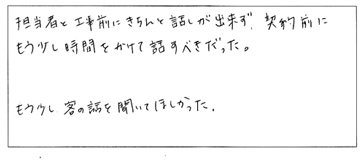 担当者と工事前にきちんと話しが出来ず、契約前に
もう少し時間をかけて話すべきだった。
もう少し客の話を聞いてほしかった。